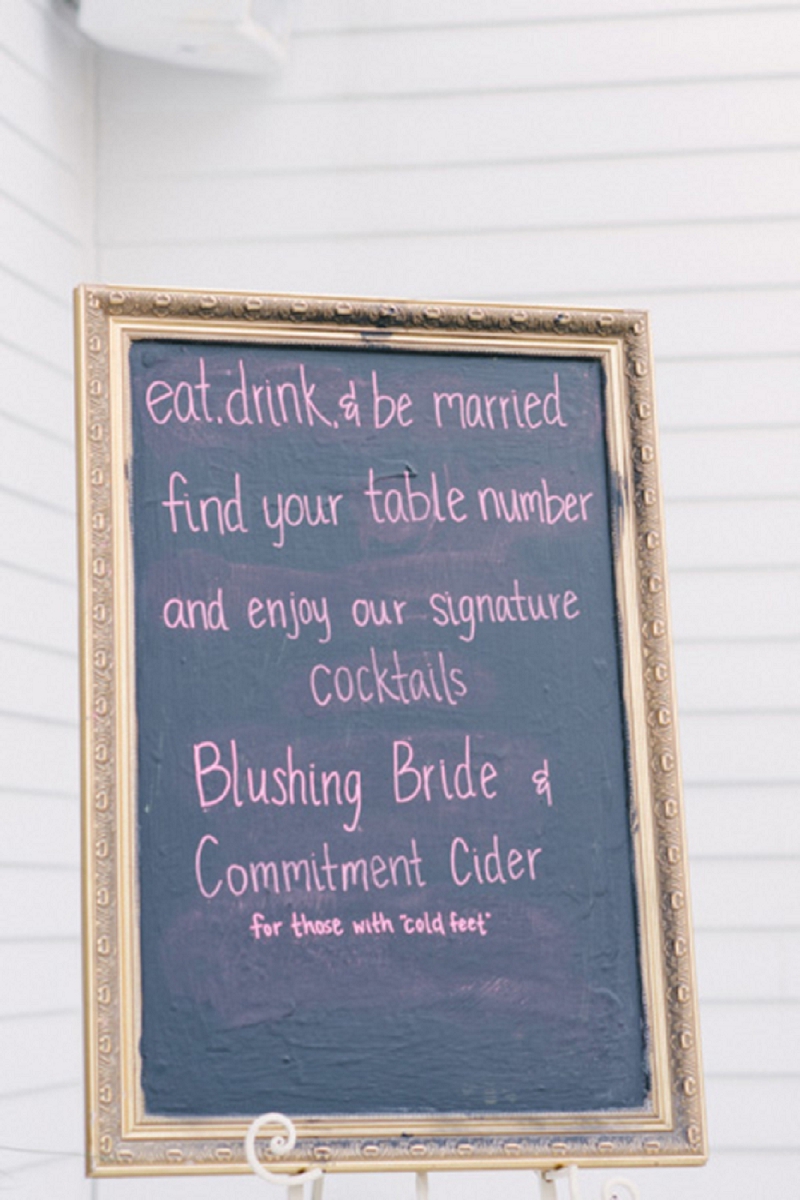 eat.drink.& be married
find your table number
and enjoy our signature
cocktails
Blushing Bride &
Commitment Cider
for those with "cold feet"